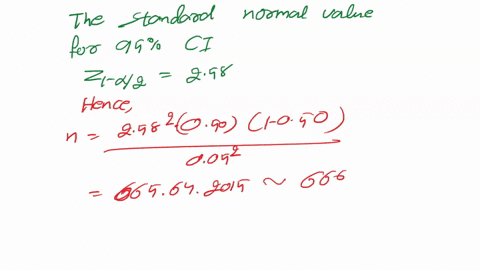 The standard normal value
for 99% CI
Z1-α/2 = 2.58
Hence,
n = 2.58²(0.50) (1-0.50)
0.05²
= 665.64.2015 ~ 666